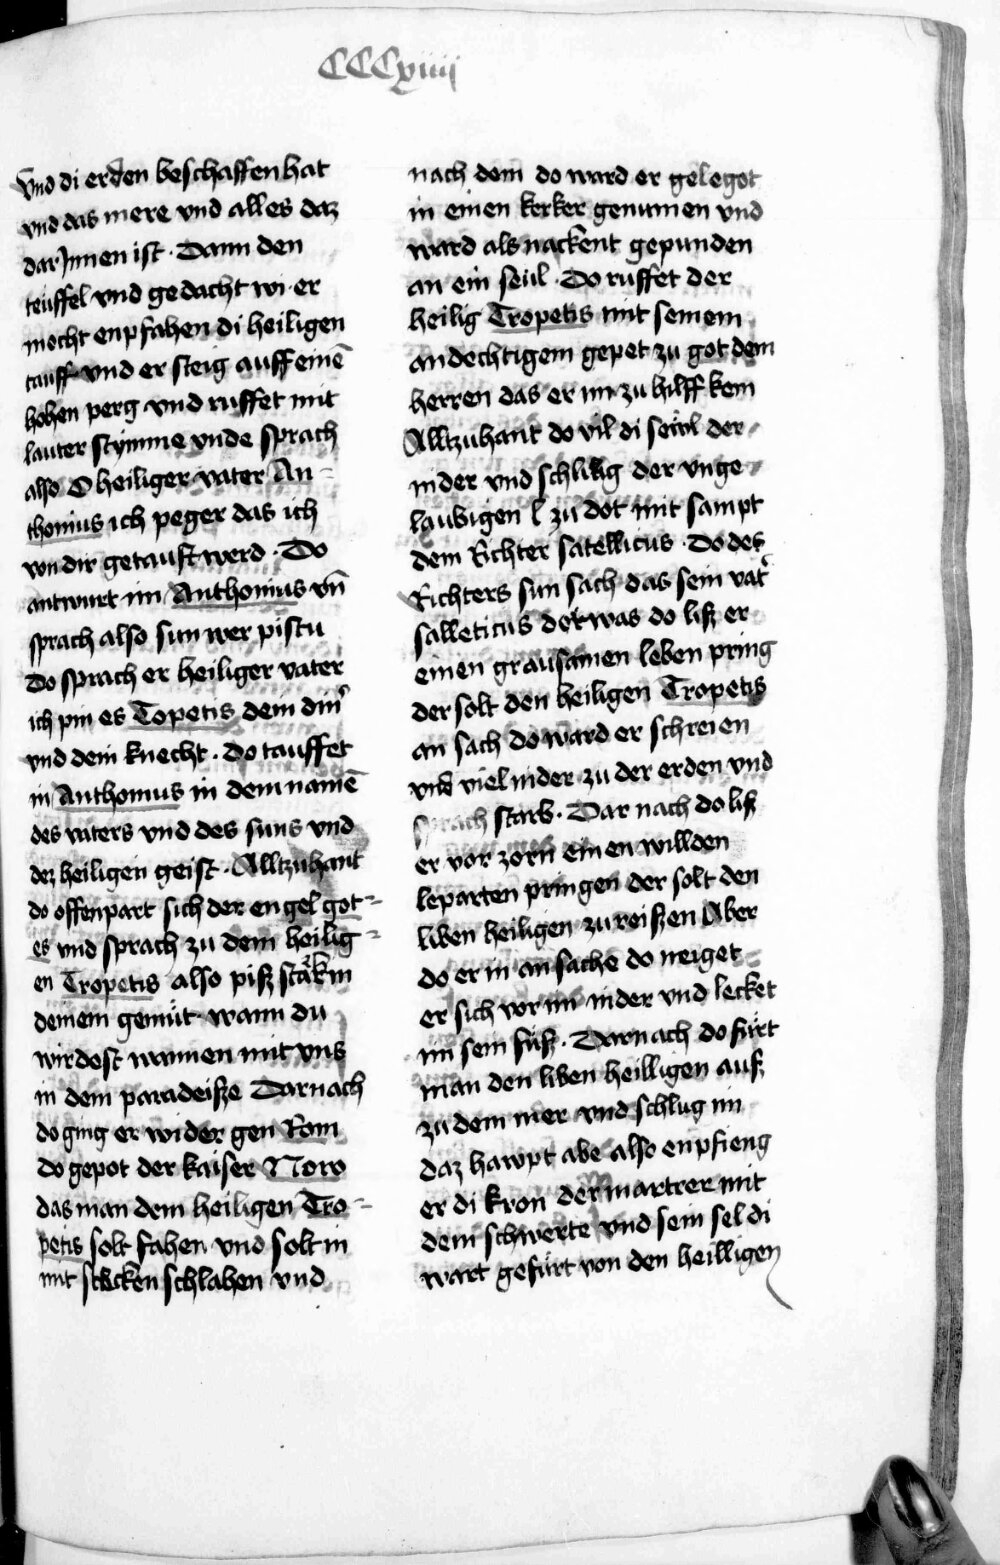 CCCxiiij
Vnd di erden beschaffen hat
vnd das mere vnd alles daz
dar Jnnen ist · Dann den
teuffel vnd gedacht wi er
mocht enpfahen di heiligen
tauff vnd er steig auff einē
hohen perg vnd ruffet mit
lauter stymme vnde sprach
also O heiliger vater An-
thonius ich peger das ich
von dir getauft werd · Do
antwurt im Anthonius vn̄
sprach also sun wer pistu
Do sprach er heiliger vater
ich pin es Topetis dein
vnd dein knecht · do tauffet
in Anthonius in dem namē
des vaters vnd des suns vnd
dez heiligen geist · Alltzuhant
do offenpart sich der engel got-
es vnd sprach zu dem heilig-
en Tropetis also pisz starck in
deinem gemüt wann du
wirdest wannen mit vns
in dem paradeisze Darnach
do ging er wider gen Rom
do gepot der kaiser Nero
das man dem heiligen Tro-
petis solt fahen vnd solt in
mit stecken schlahen vnd
nach dem do ward er gelegot
in einen kerker genumen vnd
ward als nackent gepunden
an ein seül · Do ruffet der
heilig Tropetis mit seinem
andechtigem gepet zu got dem
herren das er im zu hilff kem
Alltzuhant do vil di seẅl der
nider vnd schlug der vnge
laubigen l zu dot mit sampt
dem Richter satellicus · Do des
Richters sun sach das sein vat̓
salleticus dot was do lisz er
einen grausamen leben pring
der solt den heiligen Tropetis
an sach do ward er schreien
vnd viel nider zu der erden vnd
starb · Dar nach do lisz
er vor zorn einen willden
leparten pringen der solt den
liben heiligen zu reiszen Aber
do er in an sache do neiget
er sich vor im nider vnd lecket
im sein füsz · Darnach do fürt
man den liben heilligen ausz
zu dem mer vnd schlug im
daz hawpt abe also enpfieng
er di kron der martrer mit
dem schwerte vnd sein sel di
wart gefürt von den heilligen